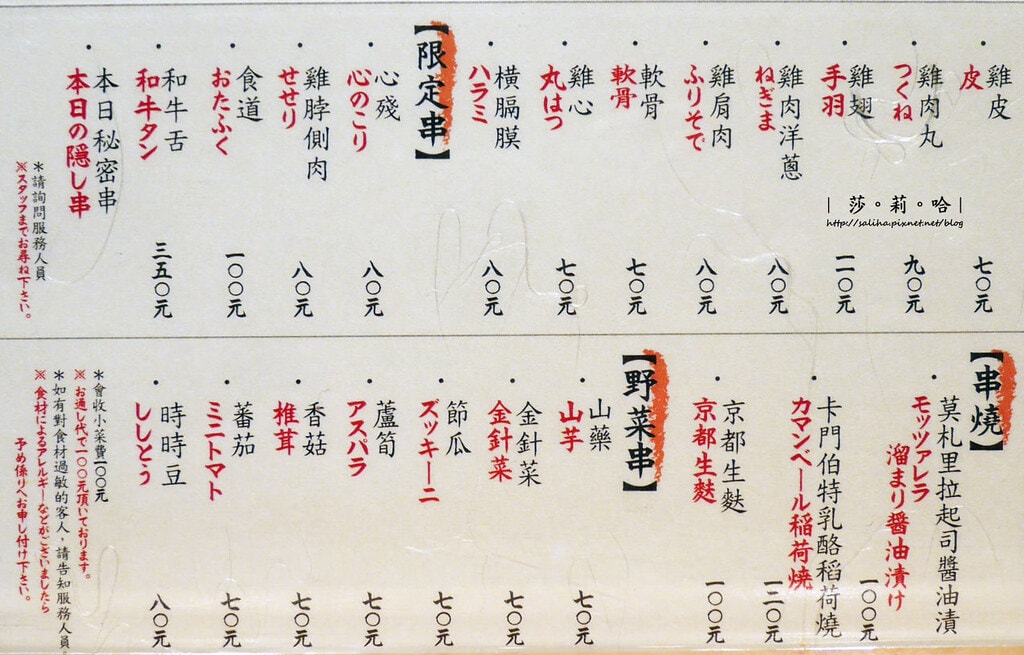 ・雞皮
皮
七〇元
・雞肉丸
つくね
九〇元
・雞翅
手羽
一一〇元
・雞肉洋蔥
ねぎま
八〇元
・雞肩肉
ふりそで
八〇元
・軟骨
軟骨
七〇元
・雞心
丸はつ
七〇元
・橫膈膜
ハラミ
八〇元
【限定串】
・心殘
心のこり
八〇元
・雞脖側肉
せせり
八〇元
・食道
おたふく
一〇〇元
・和牛舌
和牛タン
三五〇元
・本日秘密串
本日の隠し串
＊請詢問服務人員
※スタッフまでお尋ね下さい。
| 莎。莉。哈 |
http://saliha.pixnet.net/blog
【串燒】
・莫札里拉起司醬油漬
モッツァレラ
溜まり醬油漬け
一〇〇元
・卡門伯特乳酪稻荷燒
カマンベール稲荷焼
一二〇元
・京都生麩
京都生麩
一〇〇元
【野菜串】
・山藥
山芋
七〇元
・金針菜
金針菜
七〇元
・節瓜
ズッキーニ
七〇元
・蘆筍
アスパラ
七〇元
・香菇
椎茸
七〇元
・蕃茄
ミニトマト
七〇元
・時時豆
ししとう
八〇元
＊會收小菜費一〇〇元
※お通し代で一〇〇元頂いております。
＊如有對食材過敏的客人，請告知服務人員。
※食材によるアレルギーなどがございましたら
予め係りへお申し付け下さい。